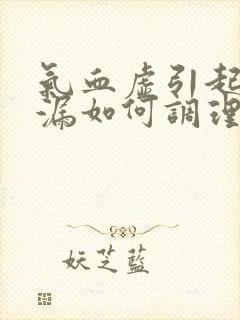 氣血虛引起
漏如何調理
妖芝藍